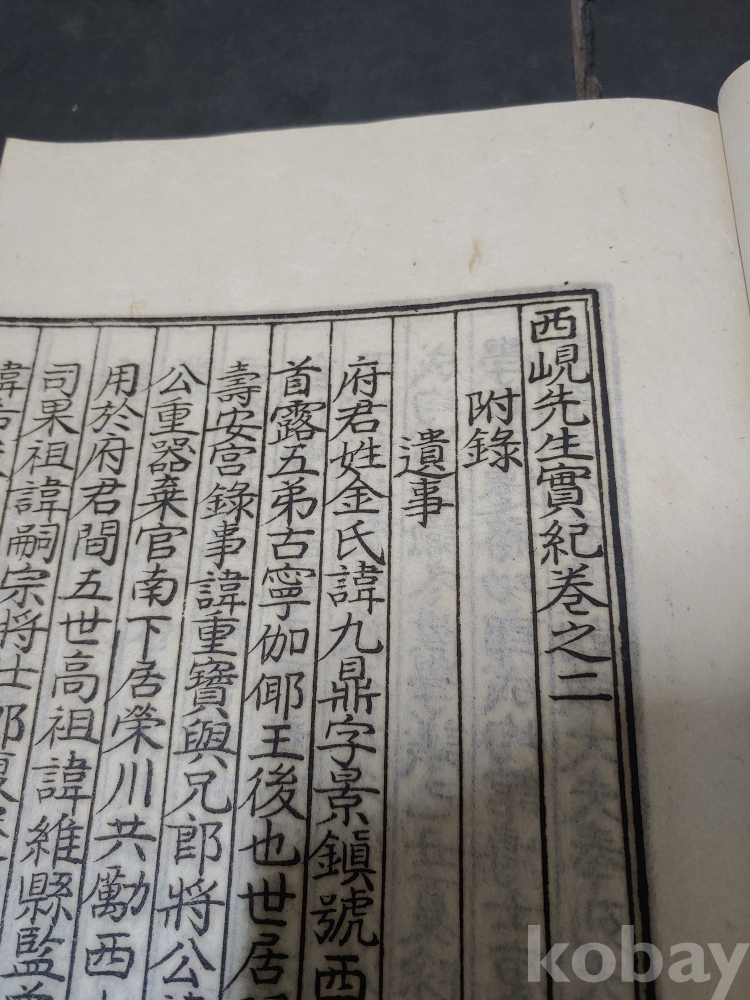 西峴先生實紀卷之二
附錄
遺事
府君姓金氏諱九鼎字景鎭號西
首露五弟古寧伽倻王後也世居
壽安宮錄事諱重寶與兄郎將公
公重器棄官南下居榮川共勵西
用於府君間五世高祖諱維縣監
司果祖諱嗣宗將士郎
kobay